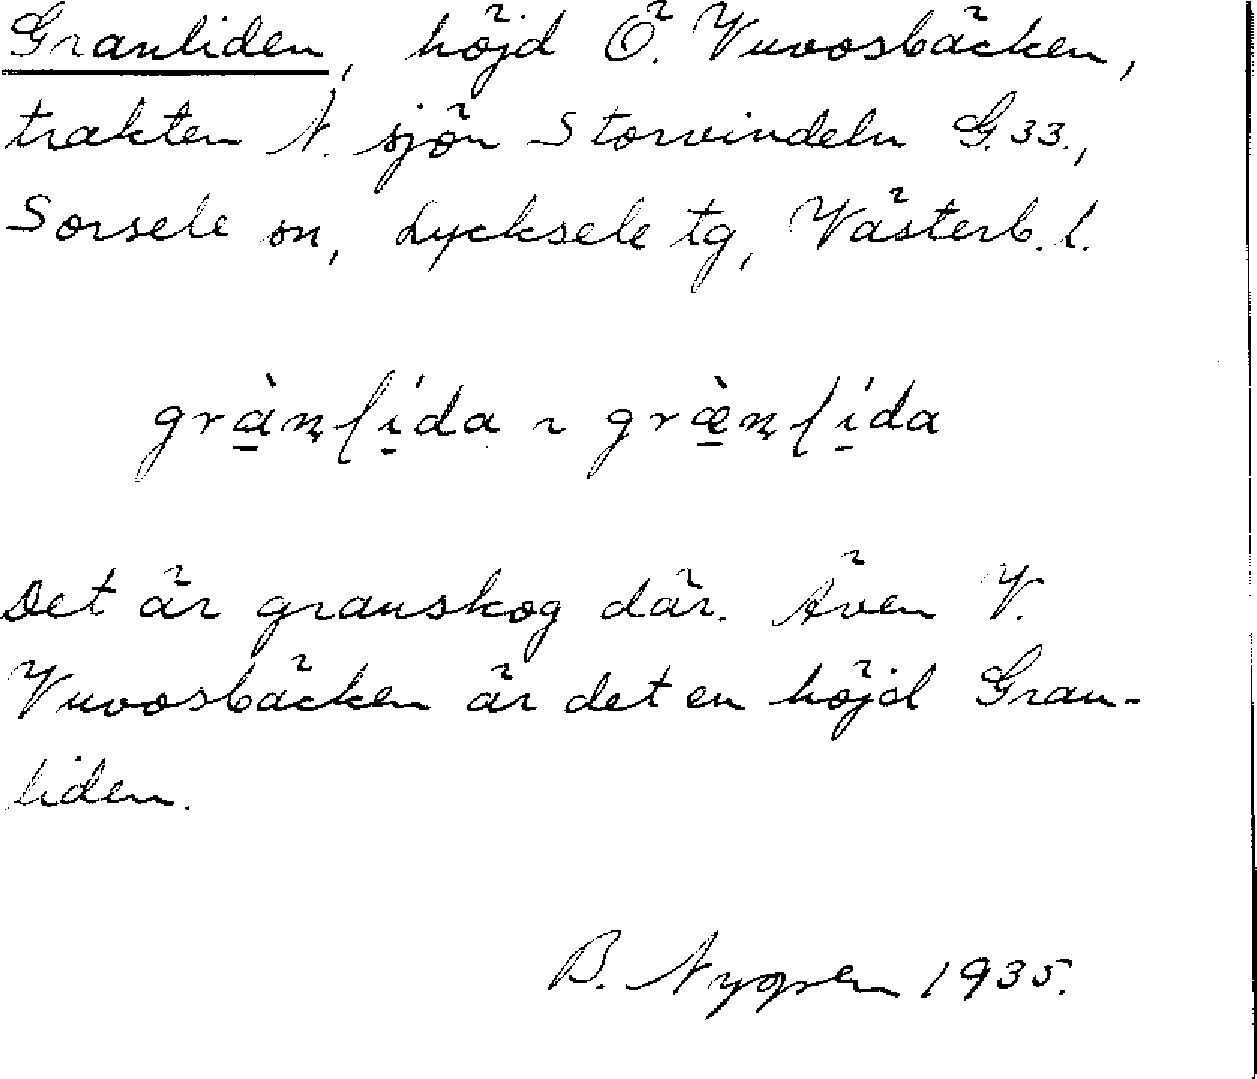 Granliden, höjd Ö. Vuvosbäcken,
trakten N. sjön Storvindeln G. 33.,
Sorsele sn, Lycksele tg, Västerb. l.
grànʃída ~ græ̀nʃída
Det är granskog där. Även V.
Vuvosbäcken är det en höjd Gran-
liden.
B. Nygren 1935.